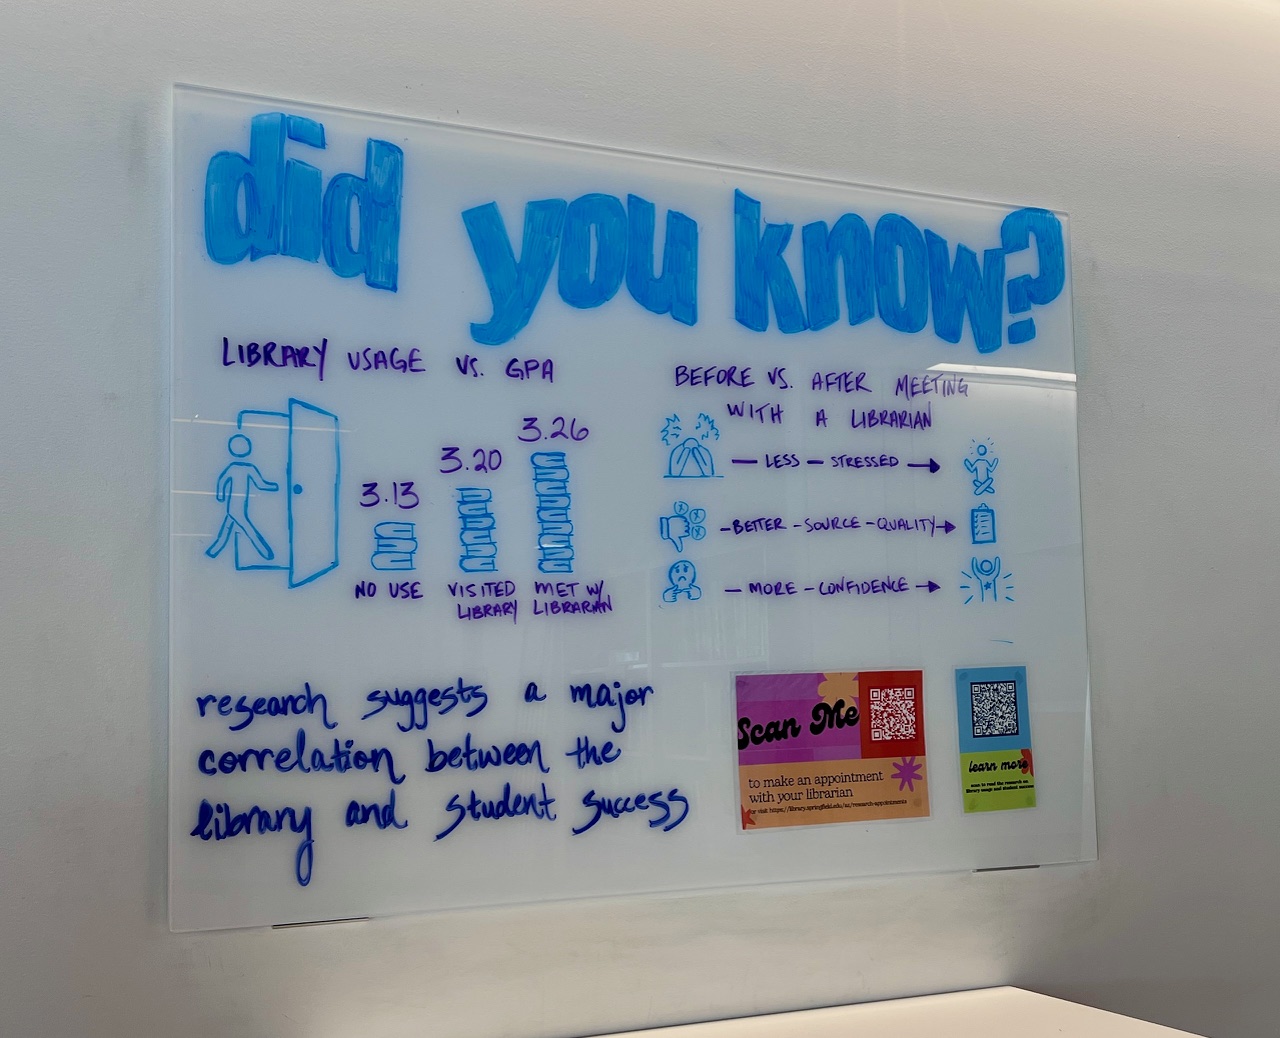 did you know?
LIBRARY USAGE VS. GPA
3.13
3.20
3.26
NO USE
VISITED
LIBRARY
MET W/
LIBRARIAN
BEFORE VS. AFTER MEETING
WITH A LIBRARIAN
— LESS — STRESSED →
— BETTER — SOURCE — QUALITY →
— MORE — CONFIDENCE →
research suggests a major
correlation between the
library and student success
Scan Me
to make an appointment
with your librarian
or visit https://library.springfield.edu/az/research-appointments
learn more
scan to read the research on
library usage and student success